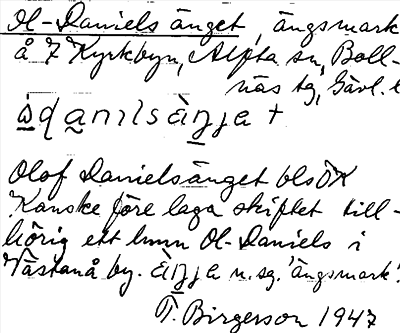 Ol-Daniels änget, ängsmark
å 7 Kyrkbyn, Alfta sn, Boll-
näs tg, Gävl. l
Olof Danielsänget blsÖK
Kanske före laga skiftet till-
hörig ett hmn Ol-Daniels i
Västanå by. n. sg. 'ängsmark'.
T. Birgerson 1947